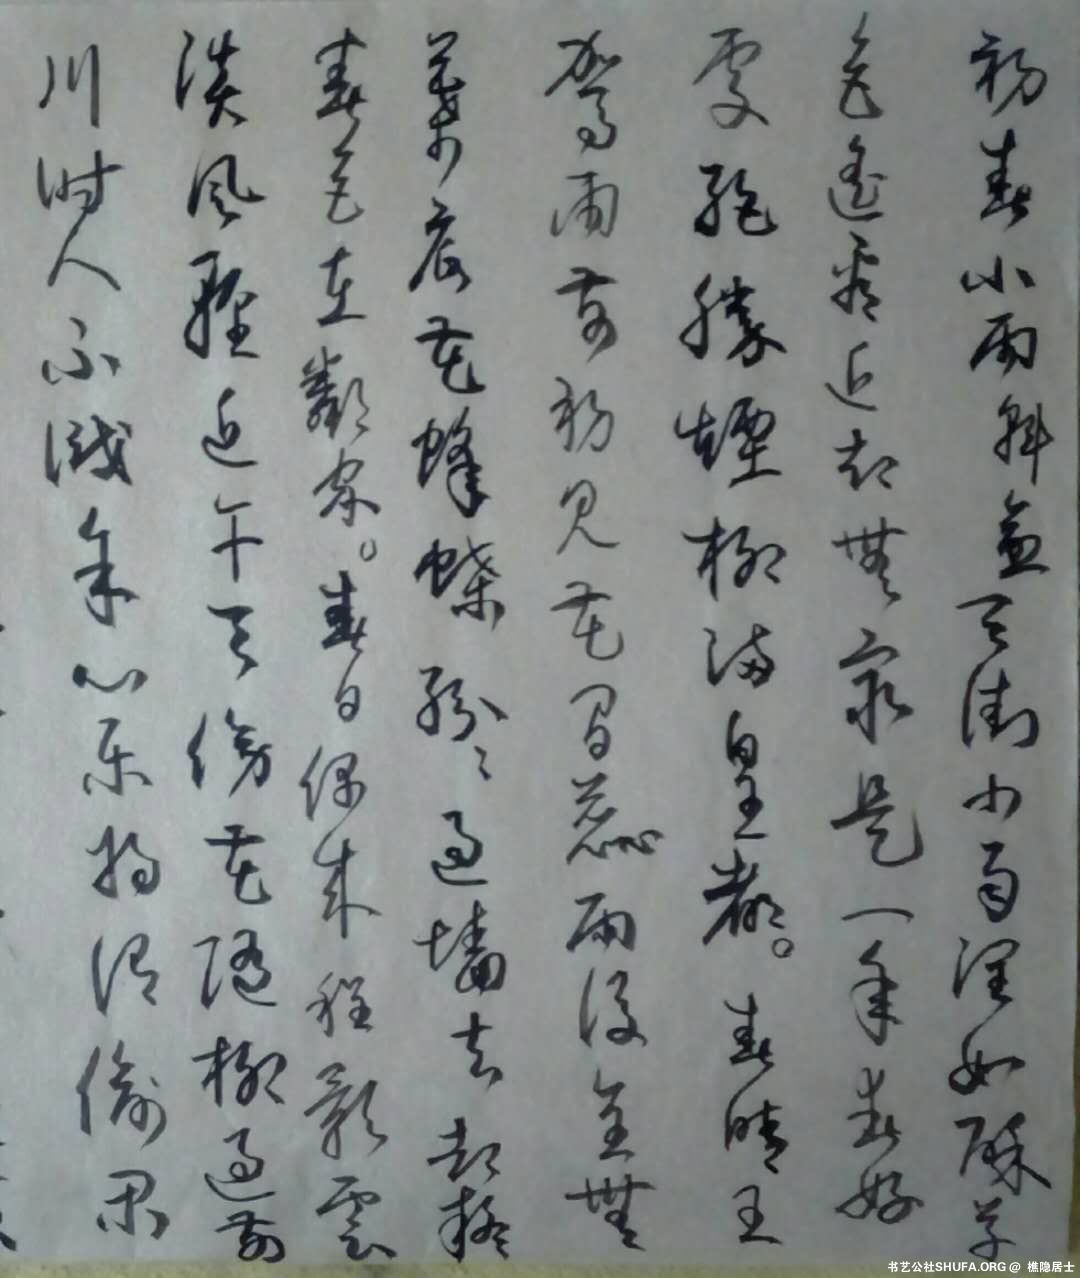 初春小雨韩愈天街小雨润如酥草
色遥看近却无最是一年春好
处绝胜烟柳满皇都。春晴王
驾雨前初见花间蕊雨后全无
叶底花蜂蝶纷々过墙去却疑
春色在邻家。春日偶成程颢云
淡风轻近午天傍花随柳过前
川时人不识余心乐将谓偷闲
书艺公社SHUFA.ORG @ 樵隐居士